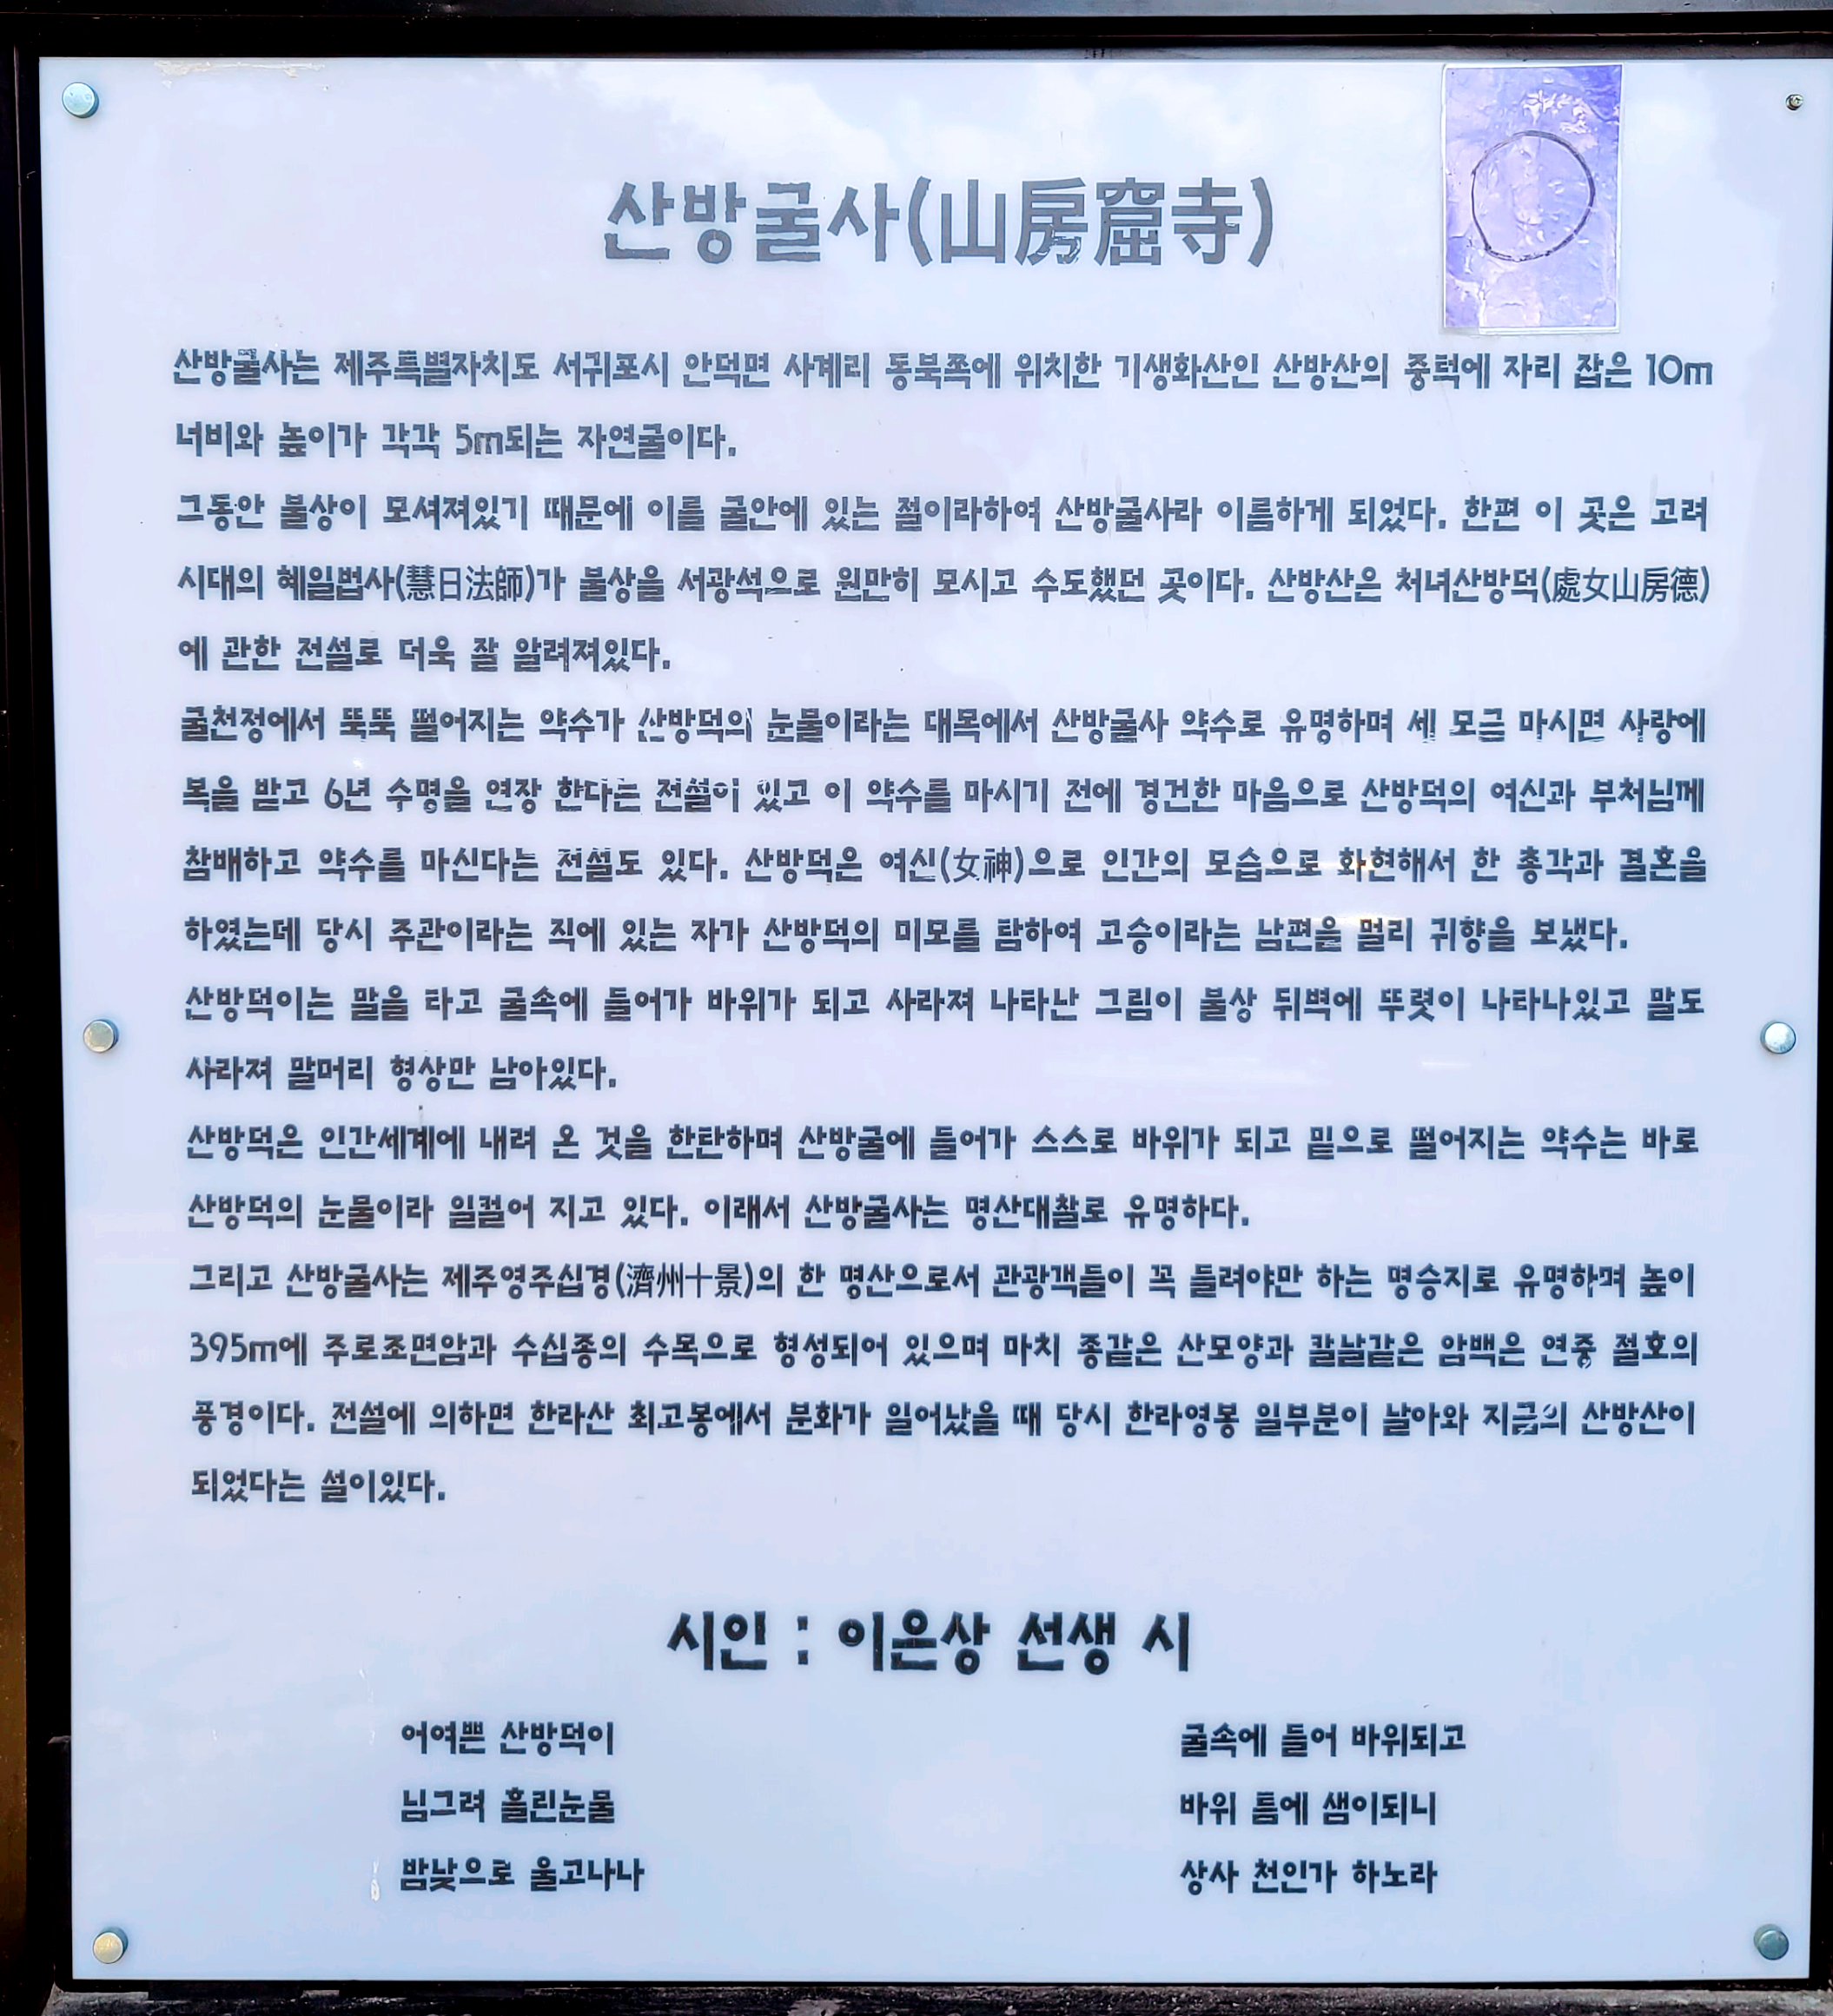 산방굴사(山房窟寺)
산방굴사는 제주특별자치도 서귀포시 안덕면 사계리 동북쪽에 위치한 기생화산인 산방산의 중턱에 자리 잡은 10m
너비와 높이가 각각 5m되는 자연굴이다.
그동안 불상이 모셔져있기 때문에 이를 굴안에 있는 절이라하여 산방굴사라 이름하게 되었다. 한편 이 곳은 고려
시대의 혜일법사(慧日法師)가 불상을 서광석으로 원만히 모시고 수도했던 곳이다. 산방산은 처녀산방덕(處女山房德)
에 관한 전설로 더욱 잘 알려져있다.
굴천정에서 뚝뚝 떨어지는 약수가 산방덕의 눈물이라는 대목에서 산방굴사 약수로 유명하며 세 모금 마시면 사랑에
복을 받고 6년 수명을 연장 한다는 전설이 있고 이 약수를 마시기 전에 경건한 마음으로 산방덕의 여신과 부처님께
참배하고 약수를 마신다는 전설도 있다. 산방덕은 여신(女神)으로 인간의 모습으로 화현해서 한 총각과 결혼을
하였는데 당시 주관이라는 직에 있는 자가 산방덕의 미모를 탐하여 고승이라는 남편을 멀리 귀향을 보냈다.
산방덕이는 말을 타고 굴속에 들어가 바위가 되고 사라져 나타난 그림이 불상 뒤벽에 뚜렷이 나타나있고 말도
사라져 말머리 형상만 남아있다.
산방덕은 인간세계에 내려 온 것을 한탄하며 산방굴에 들어가 스스로 바위가 되고 밑으로 떨어지는 약수는 바로
산방덕의 눈물이라 일컬어 지고 있다. 이래서 산방굴사는 명산대찰로 유명하다.
그리고 산방굴사는 제주영주십경(濟州十景)의 한 명산으로서 관광객들이 꼭 들려야만 하는 명승지로 유명하며 높이
395m에 주로조면암과 수십종의 수목으로 형성되어 있으며 마치 종같은 산모양과 칼날같은 암백은 연중 절호의
풍경이다. 전설에 의하면 한라산 최고봉에서 분화가 일어났을 때 당시 한라영봉 일부분이 날아와 지금의 산방산이
되었다는 설이있다.
시인 : 이은상 선생 시
어여쁜 산방덕이
님그려 흘린눈물
밤낮으로 울고나나
굴속에 들어 바위되고
바위 틈에 샘이되니
상사 천인가 하노라